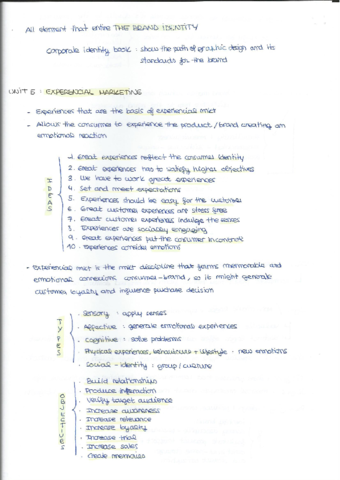 - All element that entire THE BRAND IDENTITY
Corporate identity book : show the path of graphic design and its
standards for the brand
UNIT 5 : EXPERIENCIAL MARKETING
- Experiences that are the basis of experiencial mkt
- Allows the consumer to experience the product / brand creating an
emotional reaction
IDEAS
1. Great experiences reflect the consumer identity
2. Great experiences has to satisfy higher objectives
3. We have to work great experiences
4. Set and meet expectations
5. Experiences should be easy for the customer
6. Great customer experiences are stress free
7. Great customer experiences indulge the senses
8. Experiences are socially engaging
9. Great experiences put the consumer in control
10. Experiences consider emotions
- Experiencial mkt is the mkt discipline that forms memorable and
emotional connexions consumer-brand, so it might generate
customer loyalty and influence purchase decision
TYPES
- Sensory : apply senses
- Affective : generate emotional experiences
- Cognitive : solve problems
- Physical experiences, behaviours + lifestyle · new emotions
- Social - identity : group / culture
OBJECTIVES
- Build relationships
- Produce interaction
- Verify target audience
- Increase awareness
- Increase relevance
- Increase loyalty
- Increase trial
- Increase sales
- Create memories